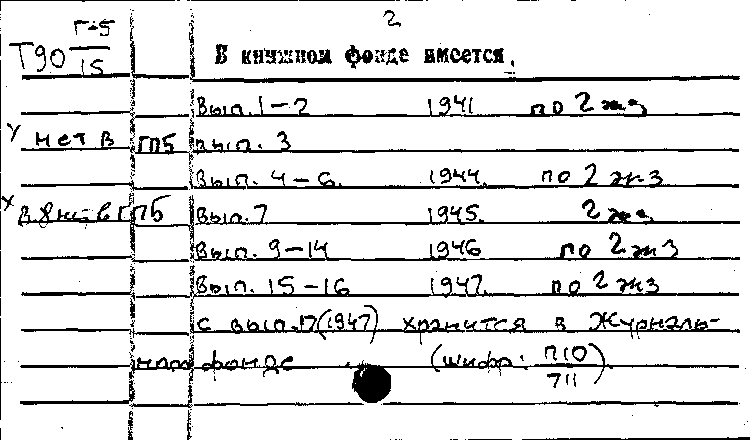 2
Т90 Г-5/15
В книжном фонде имеется.
Вып. 1-2 1941 по 2 экз
у нет в ГПБ вып. 3
Вып. 4-6. 1944. по 2 экз
х в ГПБ Вып. 7 1945. 2 экз
Вып. 9-14 1946 по 2 экз
Вып. 15-16 1947. по 2 экз
с вып. 17 (1947) хранится в Журналь-
ном фонде (шифр: П10/711).